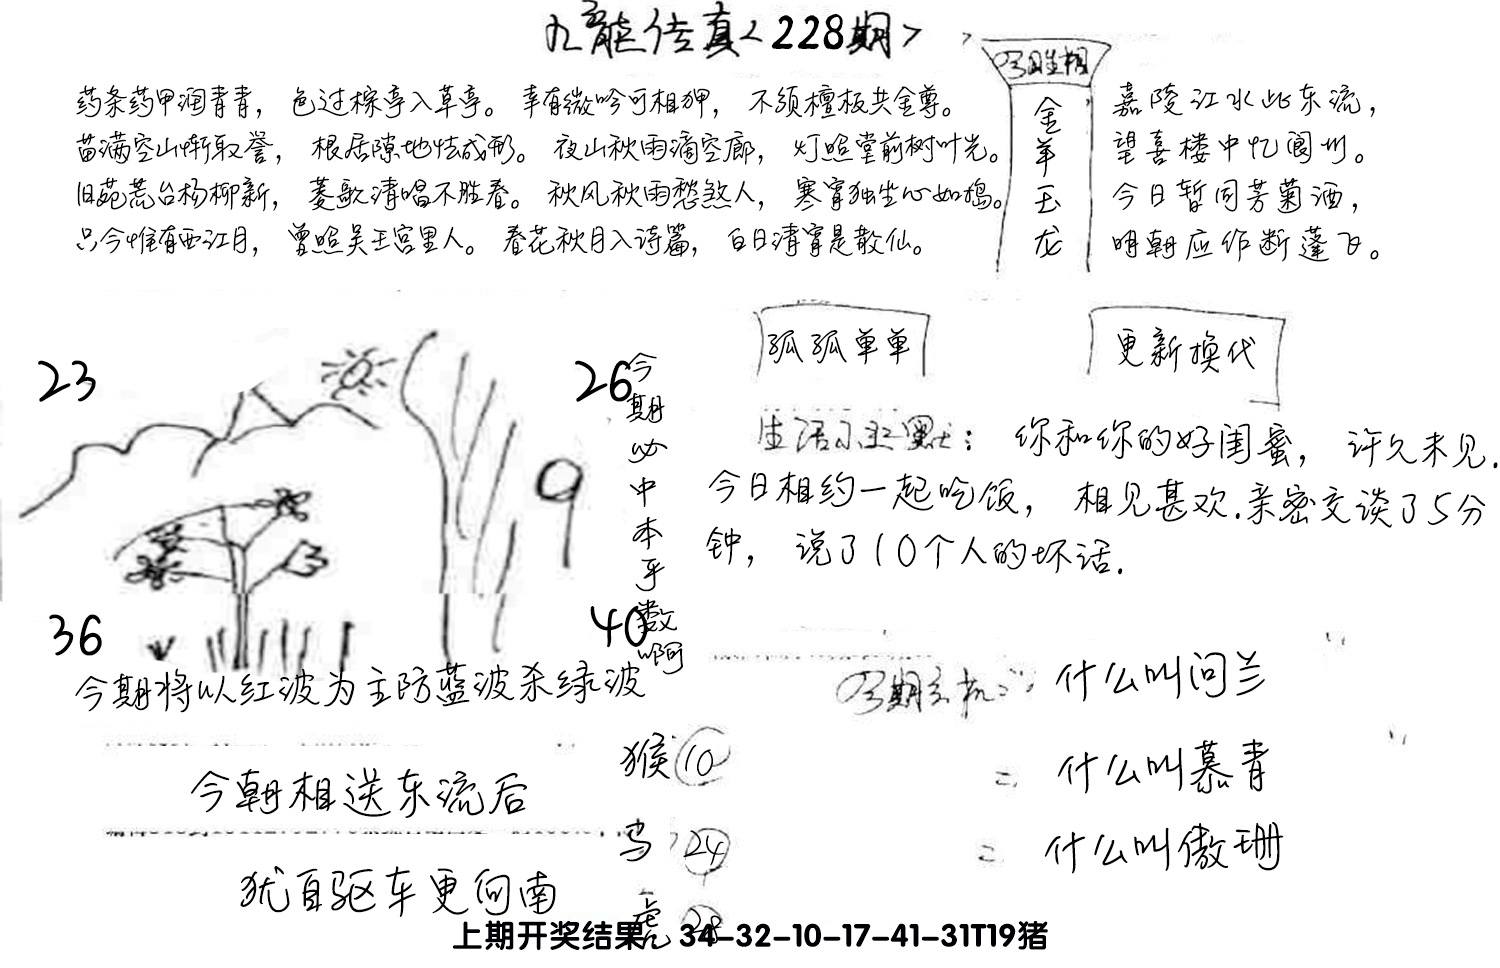 九龙传真<228期>
药条药甲润青青，色过棕亭入草亭。幸有微吟可相狎，不须檀板共金尊。
苗满空山惭取誉，根居隙地怯成形。夜山秋雨滴空廊，灯照堂前树叶光。
旧苑荒台杨柳新，菱歌清唱不胜春。秋风秋雨愁煞人，寒宵独坐心如捣。
只今惟有西江月，曾照吴王宫里人。春花秋月入诗篇，白日清宵是散仙。
金羊玉龙
嘉陵江水此东流，
望喜楼中忆阆州。
今日暂同芳菊酒，
明朝应作断蓬飞。
孤孤单单
更新换代
23
26
9
36
40
今期必中本乎数啊
生活幽默：你和你的好闺蜜，许久未见.
今日相约一起吃饭，相见甚欢.亲密交谈了5分
钟，说了10个人的坏话.
今期将以红波为主防蓝波杀绿波
今期玄机：什么叫问兰
= 什么叫慕青
= 什么叫傲珊
今朝相送东流后
犹自驱车更向南
猴 10
鸟 24
虎 28
上期开奖结果 34-32-10-17-41-31T19猪